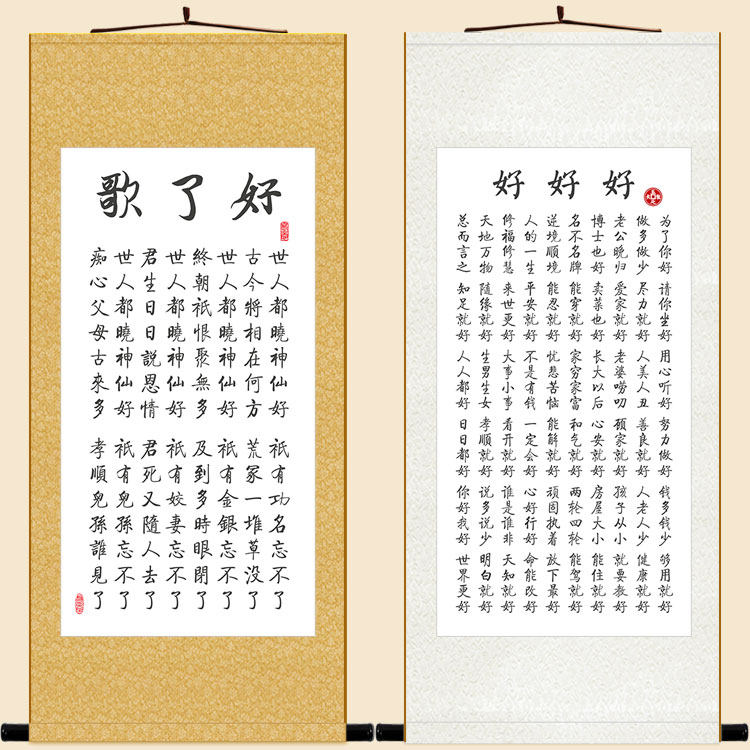 好了歌
世人都曉神仙好 祇有功名忘不了
古今將相在何方 荒冢一堆草没了
世人都曉神仙好 祇有金銀忘不了
終朝祇恨聚無多 及到多時眼閉了
世人都曉神仙好 祇有姣妻忘不了
君生日日說恩情 君死又隨人去了
世人都曉神仙好 祇有兒孫忘不了
痴心父母古來多 孝順兒孫誰見了
好好好
为了你好 请你坐好 用心听好 努力做好 钱多钱少 够用就好
做多做少 尽力就好 人美人丑 善良就好 人老人少 健康就好
老公晚归 爱家就好 老婆唠叨 顾家就好 孩子从小 就要教好
博士也好 卖菜也好 长大以后 心安就好 房屋大小 能住就好
名不名牌 能穿就好 家穷家富 和气就好 两轮四轮 能驾就好
逆境顺境 能忍就好 忧悲苦恼 能解就好 顽固执着 放下最好
人的一生 平安就好 不是有钱 一定会好 心好行好 命能改好
修福修慧 来世更好 大事小事 看开就好 谁是谁非 天知就好
天地万物 随缘就好 生男生女 孝顺就好 说多说少 明白就好
总而言之 知足就好 人人都好 日日都好 你好我好 世界更好